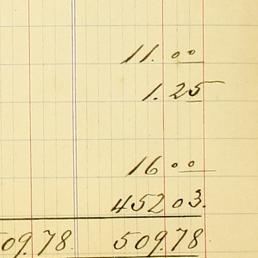 11.00
1.25
16 00
452 03.
509.78 509.78